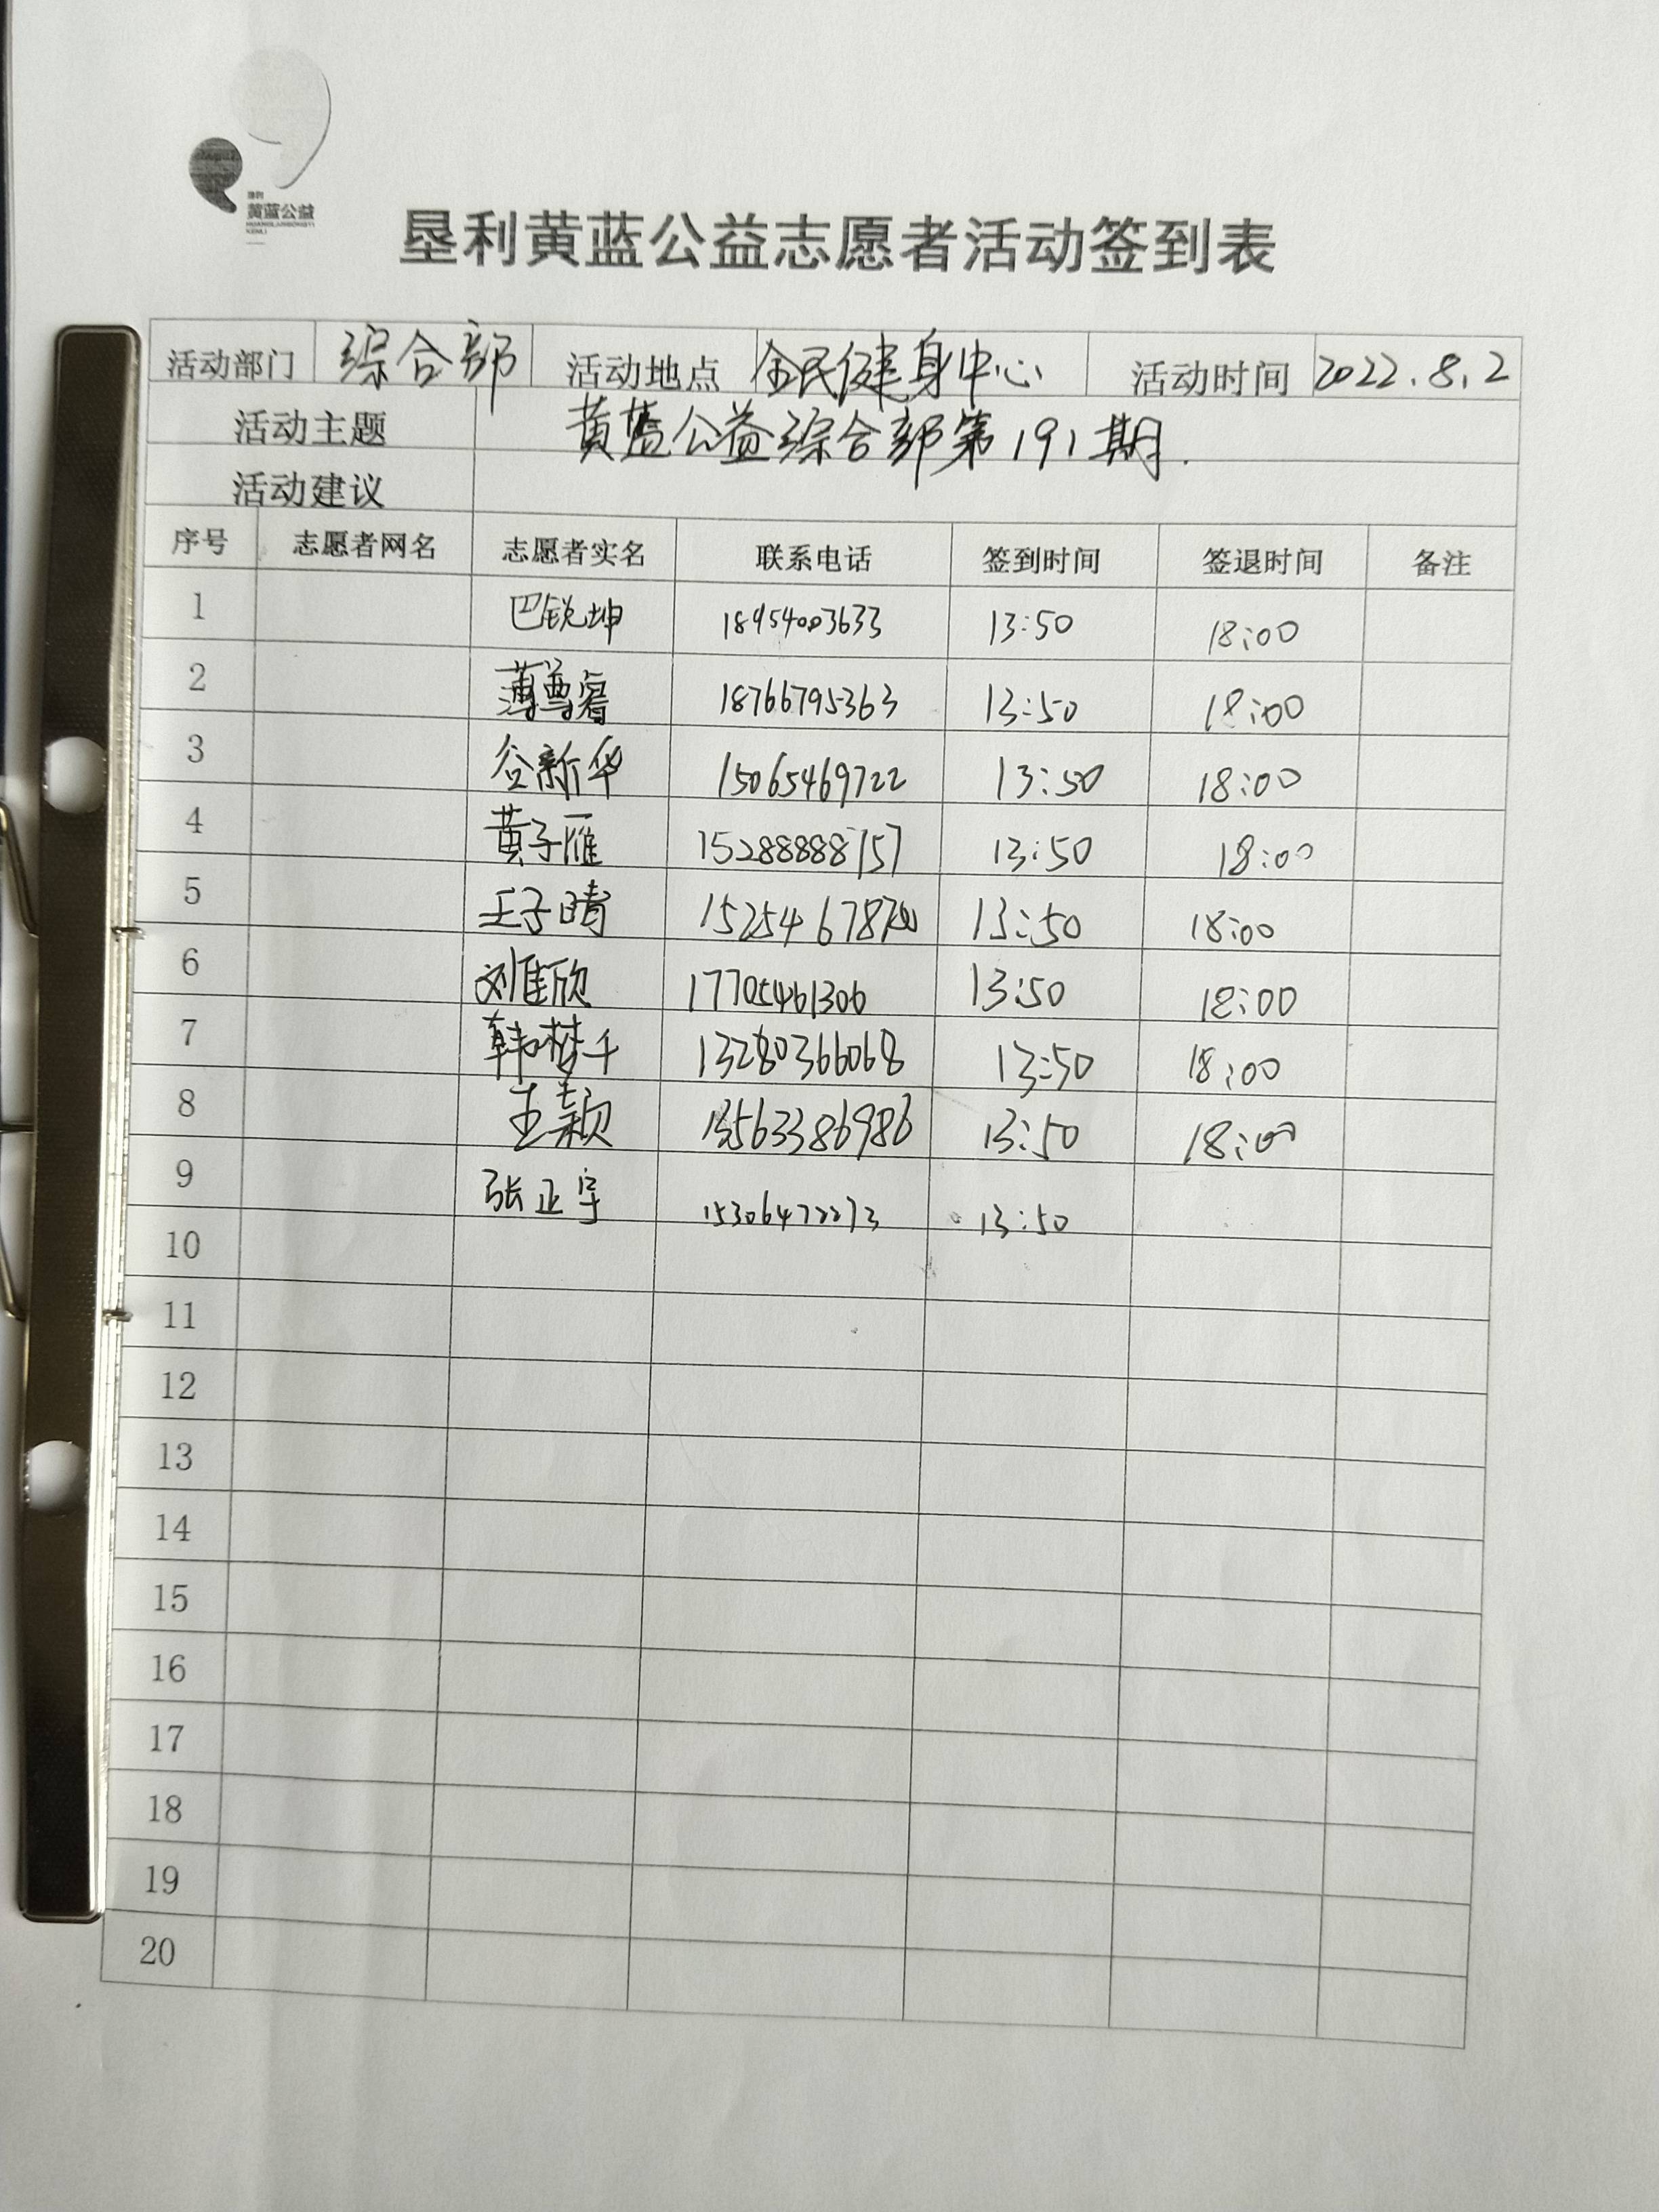 黄蓝公益
垦利黄蓝公益志愿者活动签到表
活动部门 综合部 活动地点 全民健身中心 活动时间 2022.8.2
活动主题 黄蓝公益综合部第191期.
活动建议
序号 志愿者网名 志愿者实名 联系电话 签到时间 签退时间 备注
1 巴锐坤 18954003633 13:50 18:00
2 薄尊睿 18766795363 13:50 18:00
3 谷新华 15065469722 13:50 18:00
4 黄子雁 15288888757 13:50 18:00
5 王子晴 13:50 18:00
6 刘佳欣 17705461306 13:50 18:00
7 韩梦千 13280366068 13:50 18:00
8 王颖 13563386986 13:50 18:00
9 张正宇 15306472273 13:50
10
11
12
13
14
15
16
17
18
19
20